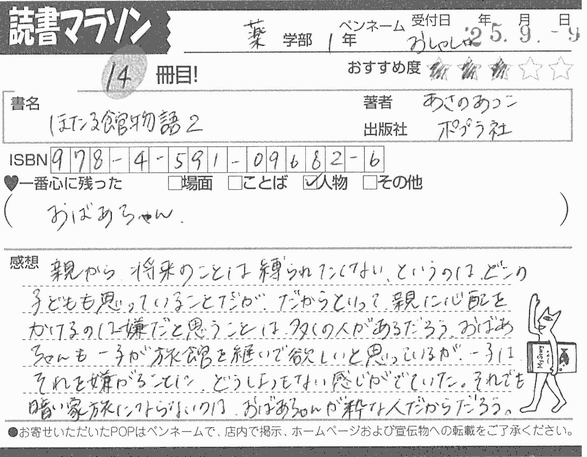 読書マラソン
薬 学部 1年 ペンネーム おしゃしゃ 受付日 年 月 日 '25.9.-9
14 冊目! おすすめ度 ★★★☆☆
書名 ほたる館物語2
著者 あさのあつこ
出版社 ポプラ社
ISBN 978-4-591-09682-6
♥一番心に残った □場面 □ことば ☑人物 □その他
(おばあちゃん.)
感想 親から将来のことは縛られたくない、というのは、どこの
子どもも思っていることだが、だからといって親に心配を
かけるのは嫌だと思うことは、多くの人があるだろう。おばあ
ちゃんも一子が旅館を継いで欲しいと思っているが、一子は
それを嫌がることに、どうしようもない感じがでていた。それでも
暗い家族にならないのは、おばあちゃんが粋な人だからだろう。
●お寄せいただいたPOPはペンネームで、店内で掲示、ホームページおよび宣伝物への転載をご了承ください。